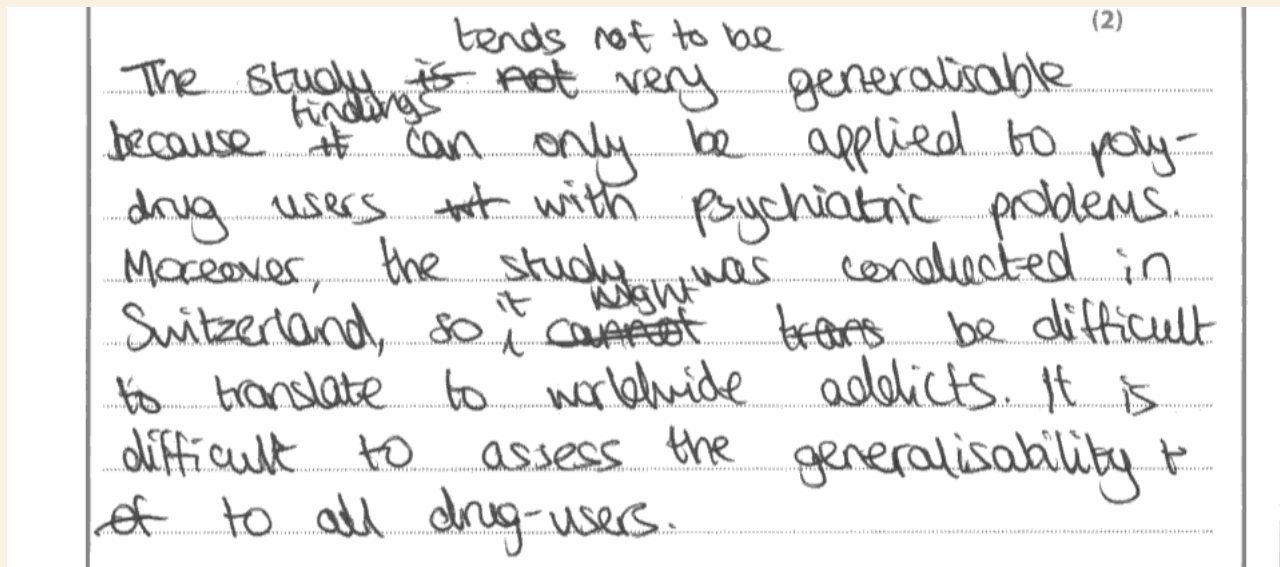 (2)
tends not to be
The study is not very generalisable
findings
because it can only be applied to poly-
drug users wt with psychiatric problems.
Moreover, the study was conducted in
it might
Switzerland, so i cannot trans be difficult
to translate to worldwide addicts. It is
difficult to assess the generalisability t
of to all drug-users.